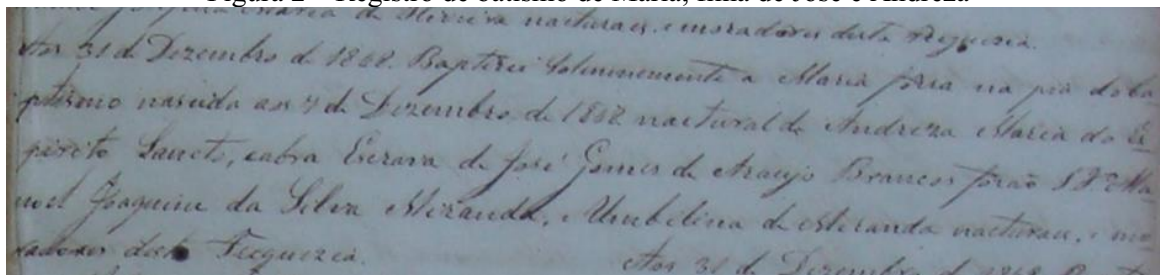 Figura 2 – Registro de batismo de Maria, filha de José e Andreza
Maria de Oliveira naturaes, e moradores desta Freguezia.
Aos 31 de Dezembro de 1868. Baptizei Solemnemente a Maria forra na pia do ba-
ptismo nascida aos 7 de Dezembro de 1868 natural de Andreza Maria do Es-
pirito Sancto, cabra Escrava de José Gomes de Araujo Branco forão P. P. Ma-
noel Joaquim da Silva Miranda, e Umbelina de Miranda naturaes, e mo-
radores desta Freguezia. Aos 31 de Dezembro de 1868